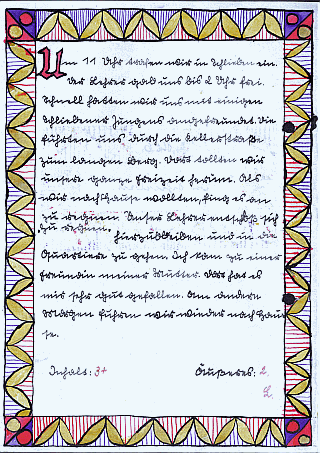 Um 11 Uhr trafen wir in Schlieben ein.
Der Lehrer gab uns bis 2 Uhr frei.
Schnell hatten wir uns mit einigen
Schliebener Jungens angefreundet. Die
führten uns durch die Kellerstraße
zum langen Berg. Dort tollten wir
unsere ganze Freizeit herum. Als
wir nach Hause wollten, fing es an
zu regnen. Unser Lehrer entschloß sich
zu regnen,
hierzubleiben und in die
Quartiere zu gehen. Ich kam zu einer
Freundin meiner Mutter. Dort hat es
mir sehr gut gefallen. Am andern
Morgen fuhren wir wieder nach Hau
se.
Inhalt: 3+ Äußeres: 2
L.